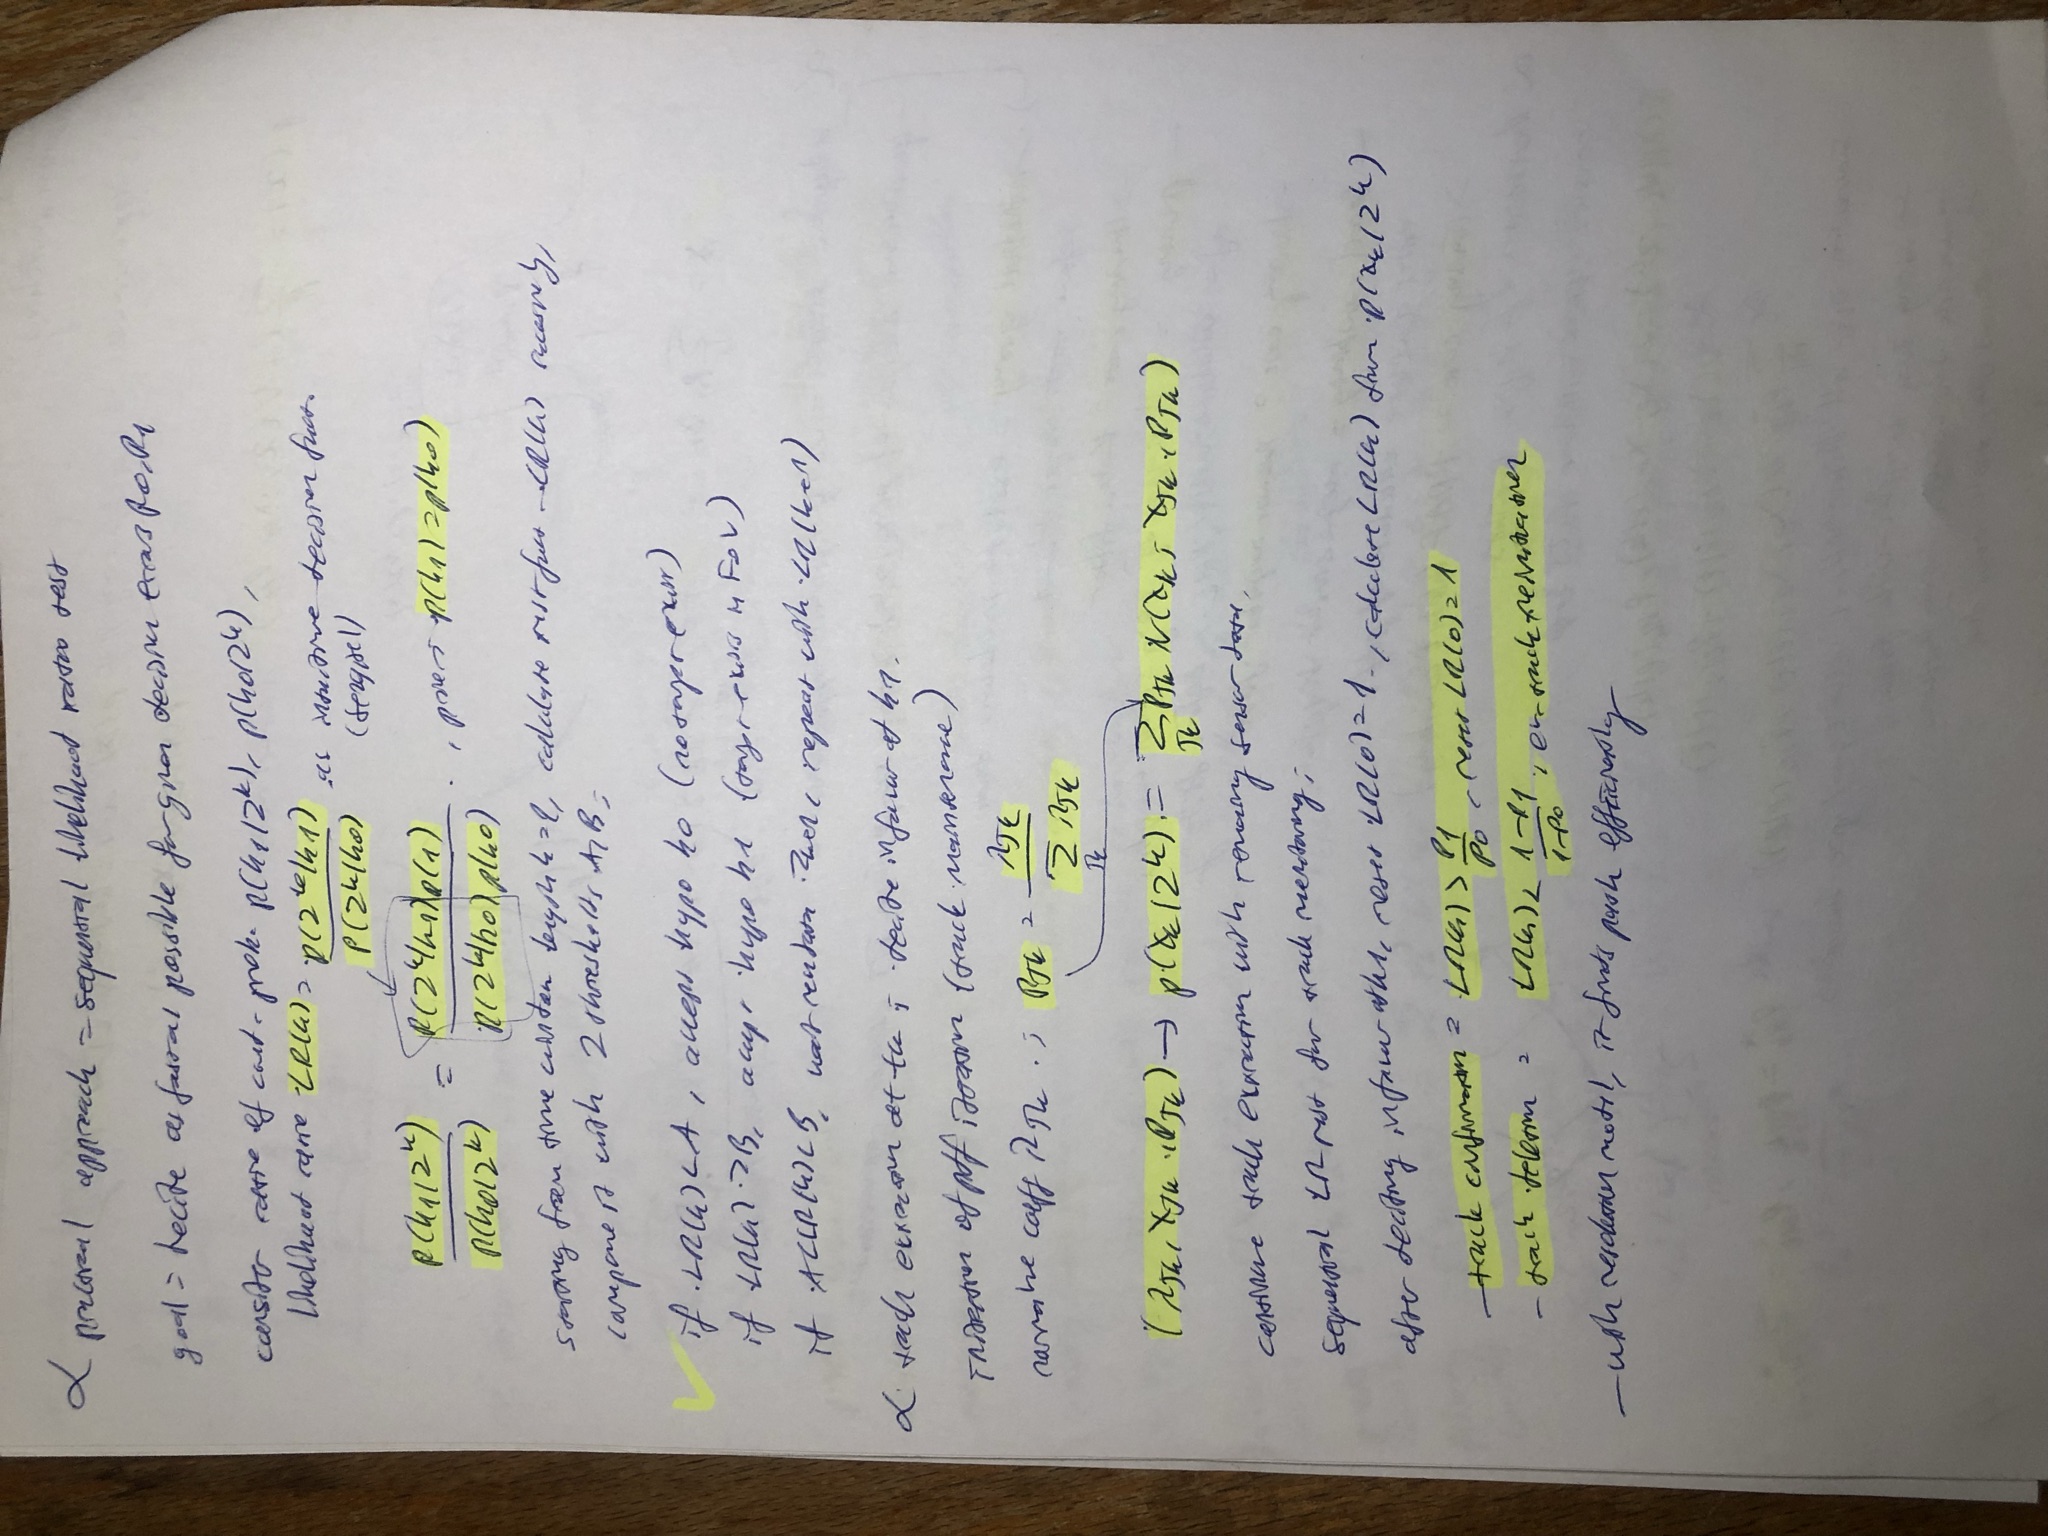 α practical approach = sequential likelihood ratio test
goal = decide as fast as possible for given decision errors P0, P1
consider ratio of cond. prob. p(h1|Z^k), p(h0|Z^k),
likelihood ratio LR(k) = p(Z^k|h1) / p(Z^k|h0) as intuitive decision func.
(sequential)
p(h1|Z^k) / p(h0|Z^k) = p(Z^k|h1)p(h1) / p(Z^k|h0)p(h0) , priors p(h1) = p(h0)
starting from time window length k=1, calculate test func LR(k) recursively,
compare it with 2 thresholds A, B;
if LR(k) < A, accept hypo h0 (no target exist)
if LR(k) > B, accept hypo h1 (target exists in FoV)
if A < LR(k) < B, wait new data, repeat with LR(k+1)
α track extraction at tk; decide in favour of h1.
initiation of pdf iteration (track maintenance)
normalize coeff λjk ; Pjk = λjk / Σjk λjk
(λjk, xjk, Pjk) → p(xk|Z^k) = Σjk Pjk N(xk; xjk, Pjk)
continue track extraction with remaining sensor data,
sequential LR test for track monitoring;
after deciding in favour of h1, reset LR(0) = 1, calculate LR(k) from p(xk|Z^k)
- track confirmation = LR(k) > P1/P0, reset LR(0) = 1
- track deletion = LR(k) < 1-P1 / 1-P0, or track reinitiation
- with resolution model, it